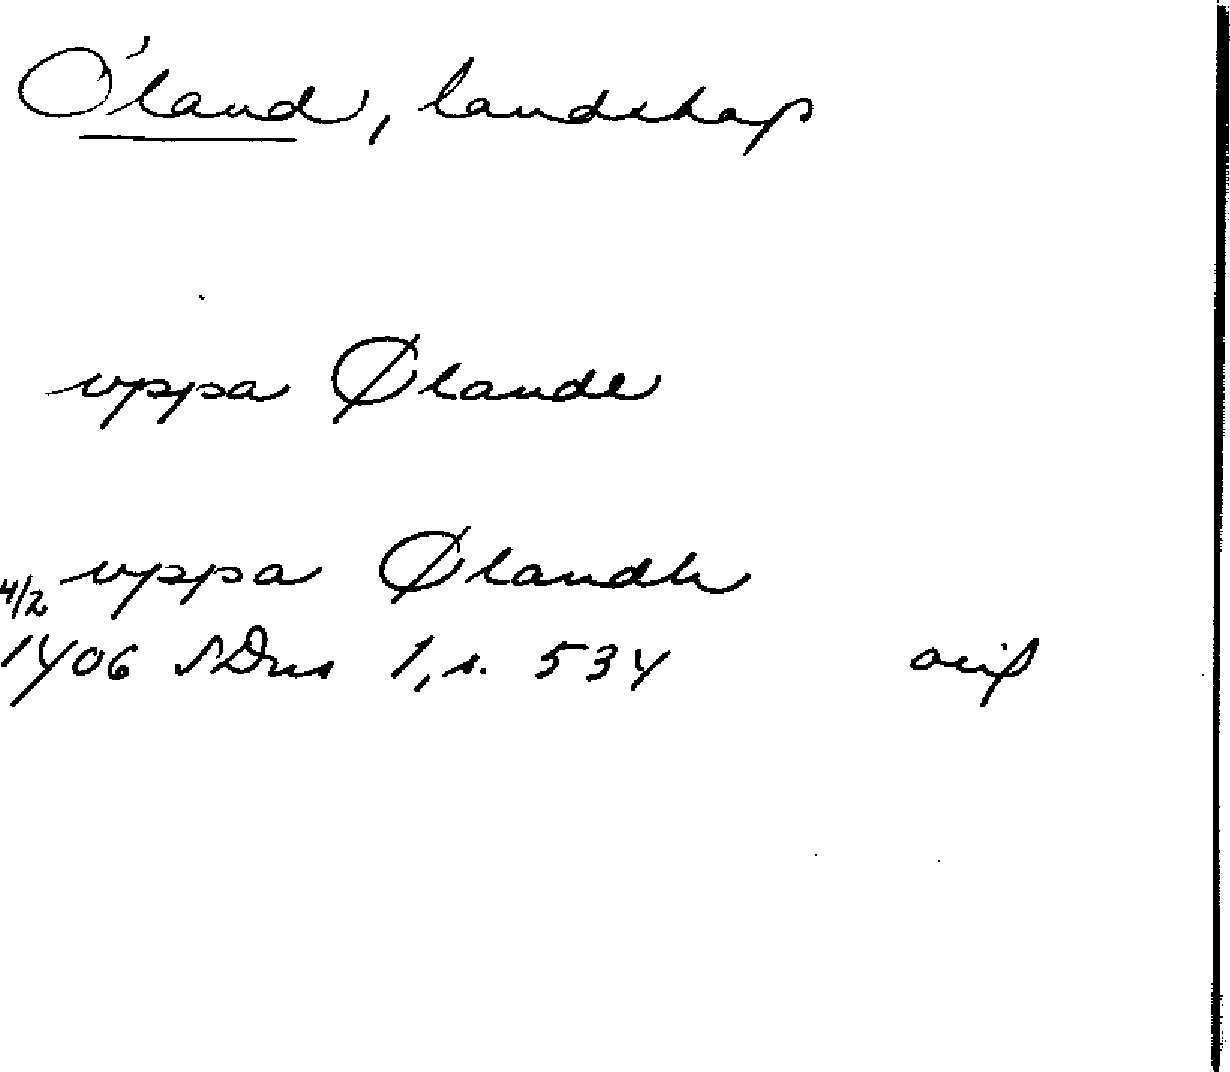 Öland, landskap
uppa Ølande
uppa Ølandh
4/2
1406 SDns 1, s. 534 avip